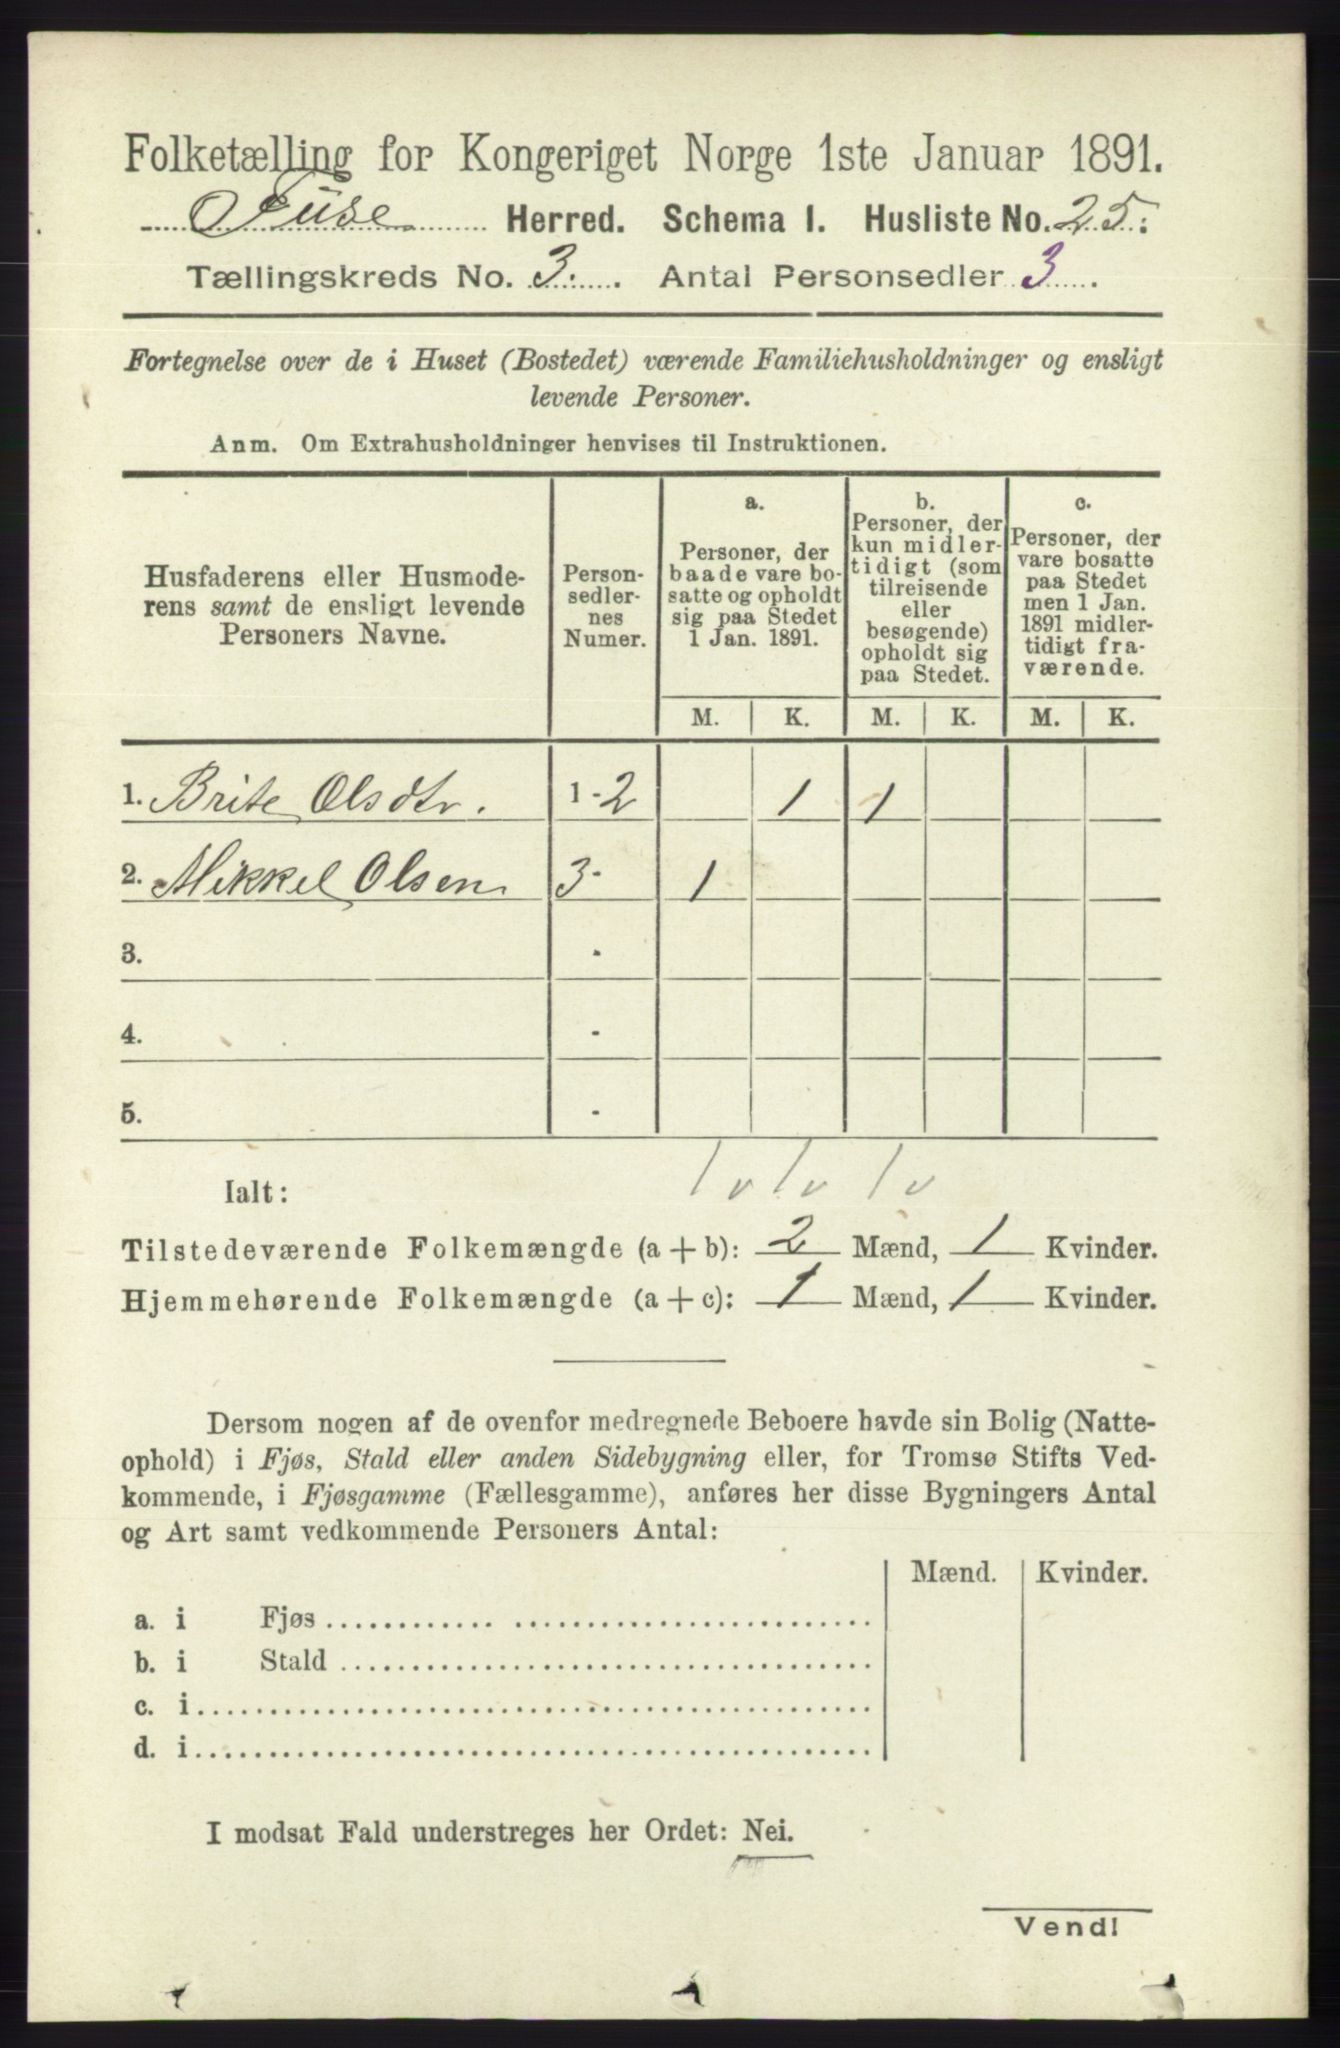 Folketælling for Kongeriget Norge 1ste Januar 1891.
Fuse Herred. Schema I. Husliste No. 25.
Tællingskreds No. 3. Antal Personsedler 3.
Fortegnelse over de i Huset (Bostedet) værende Familiehusholdninger og ensligt
levende Personer.
Anm. Om Extrahusholdninger henvises til Instruktionen.
Husfaderens eller Husmode-
rens samt de ensligt levende
Personers Navne.
Person-
sedler-
nes
Numer.
a.
Personer, der
baade vare bo-
satte og opholdt
sig paa Stedet
1 Jan. 1891.
b.
Personer, der
kun midler-
tidigt (som
tilreisende
eller
besøgende)
opholdt sig
paa Stedet.
c.
Personer, der
vare bosatte
paa Stedet
men 1 Jan.
1891 midler-
tidigt fra-
værende.
M. K. M. K. M. K.
1. Brite Olsdtr. 1-2 1 1
2. Mikkel Olsen 3- 1
3. -
4. -
5. -
1 v 1 v 1 v
Ialt:
Tilstedeværende Folkemængde (a + b): 2 Mænd, 1 Kvinder.
Hjemmehørende Folkemængde (a + c): 1 Mænd, 1 Kvinder.
Dersom nogen af de ovenfor medregnede Beboere havde sin Bolig (Natte-
ophold) i Fjøs, Stald eller anden Sidebygning eller, for Tromsø Stifts Ved-
kommende, i Fjøsgamme (Fællesgamme), anføres her disse Bygningers Antal
og Art samt vedkommende Personers Antal:
Mænd. Kvinder.
a. i Fjøs
b. i Stald
c. i
d. i
I modsat Fald understreges her Ordet: Nei.
Vend!